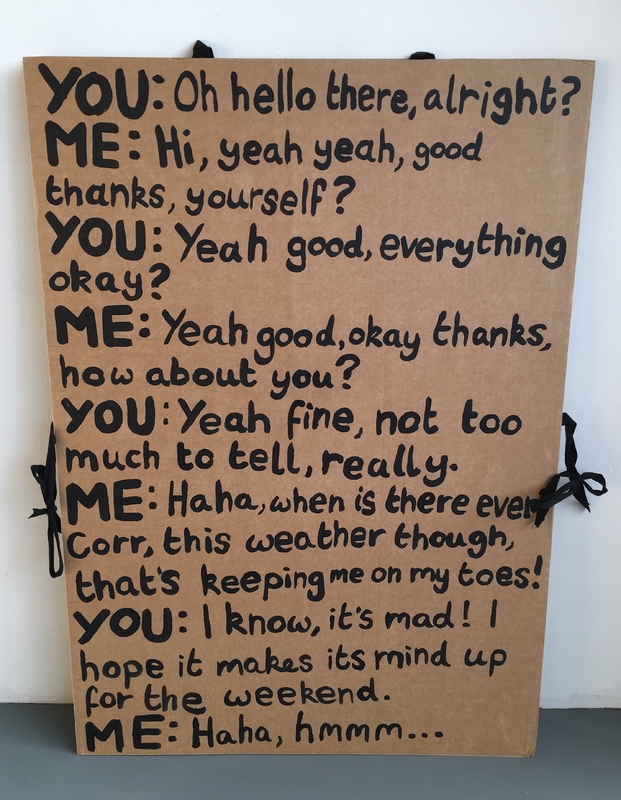 YOU: Oh hello there, alright?
ME: Hi, yeah yeah, good
thanks, yourself?
YOU: Yeah good, everything
okay?
ME: Yeah good, okay thanks,
how about you?
YOU: Yeah fine, not too
much to tell, really.
ME: Haha, when is there ever
Corr, this weather though,
that's keeping me on my toes!
YOU: I know, it's mad! I
hope it makes its mind up
for the weekend.
ME: Haha, hmmm...